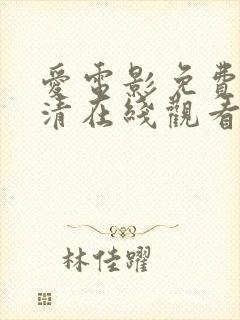 愛電影免費
清在綫觀看
林佳躍